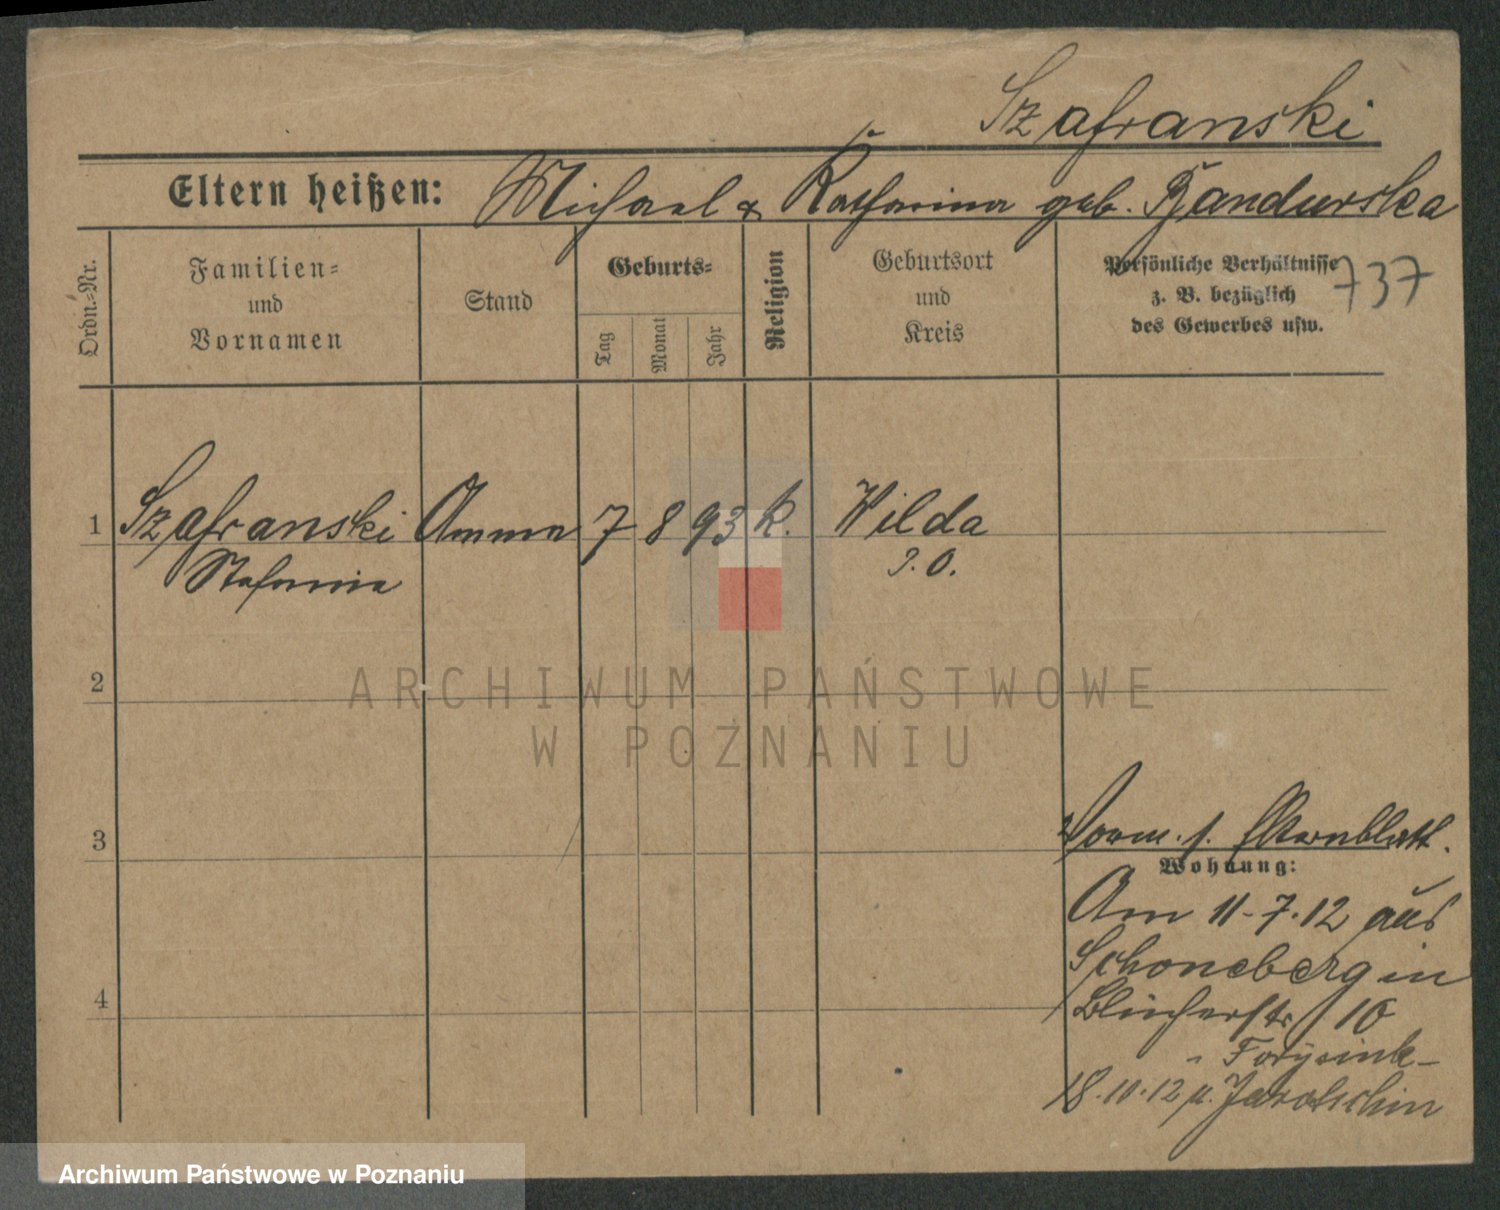 Szafranski
Eltern heißen: Michael & Katharina geb. Pandurska
Ordn.-Nr.
Familien-
und
Vornamen
Stand
Geburts-
Tag
Monat
Jahr
Religion
Geburtsort
und
Kreis
Persönliche Verhältnisse
z. B. bezüglich
des Gewerbes usw.
737
1 Szafranski Amme 7 8 93 K. Wilda
Stefania P. O.
2
3
4
ARCHIWUM PAŃSTWOWE
W POZNANIU
Vorm. s. Elternblatt.
Wohnung:
Am 11-7.12 aus
Schöneberg in
Blücherstr 10
18.10.12 n. Jarotschin
Archiwum Państwowe w Poznaniu